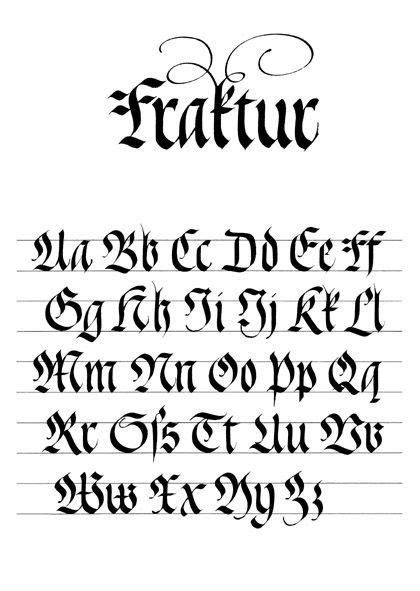 Fraktur
Aa Bb Cc Dd Ee Ff
Gg Hh Ii Jj Kk Ll
Mm Nn Oo Pp Qq
Rr Sſs Tt Uu Vv
Ww Xx Yy Zz